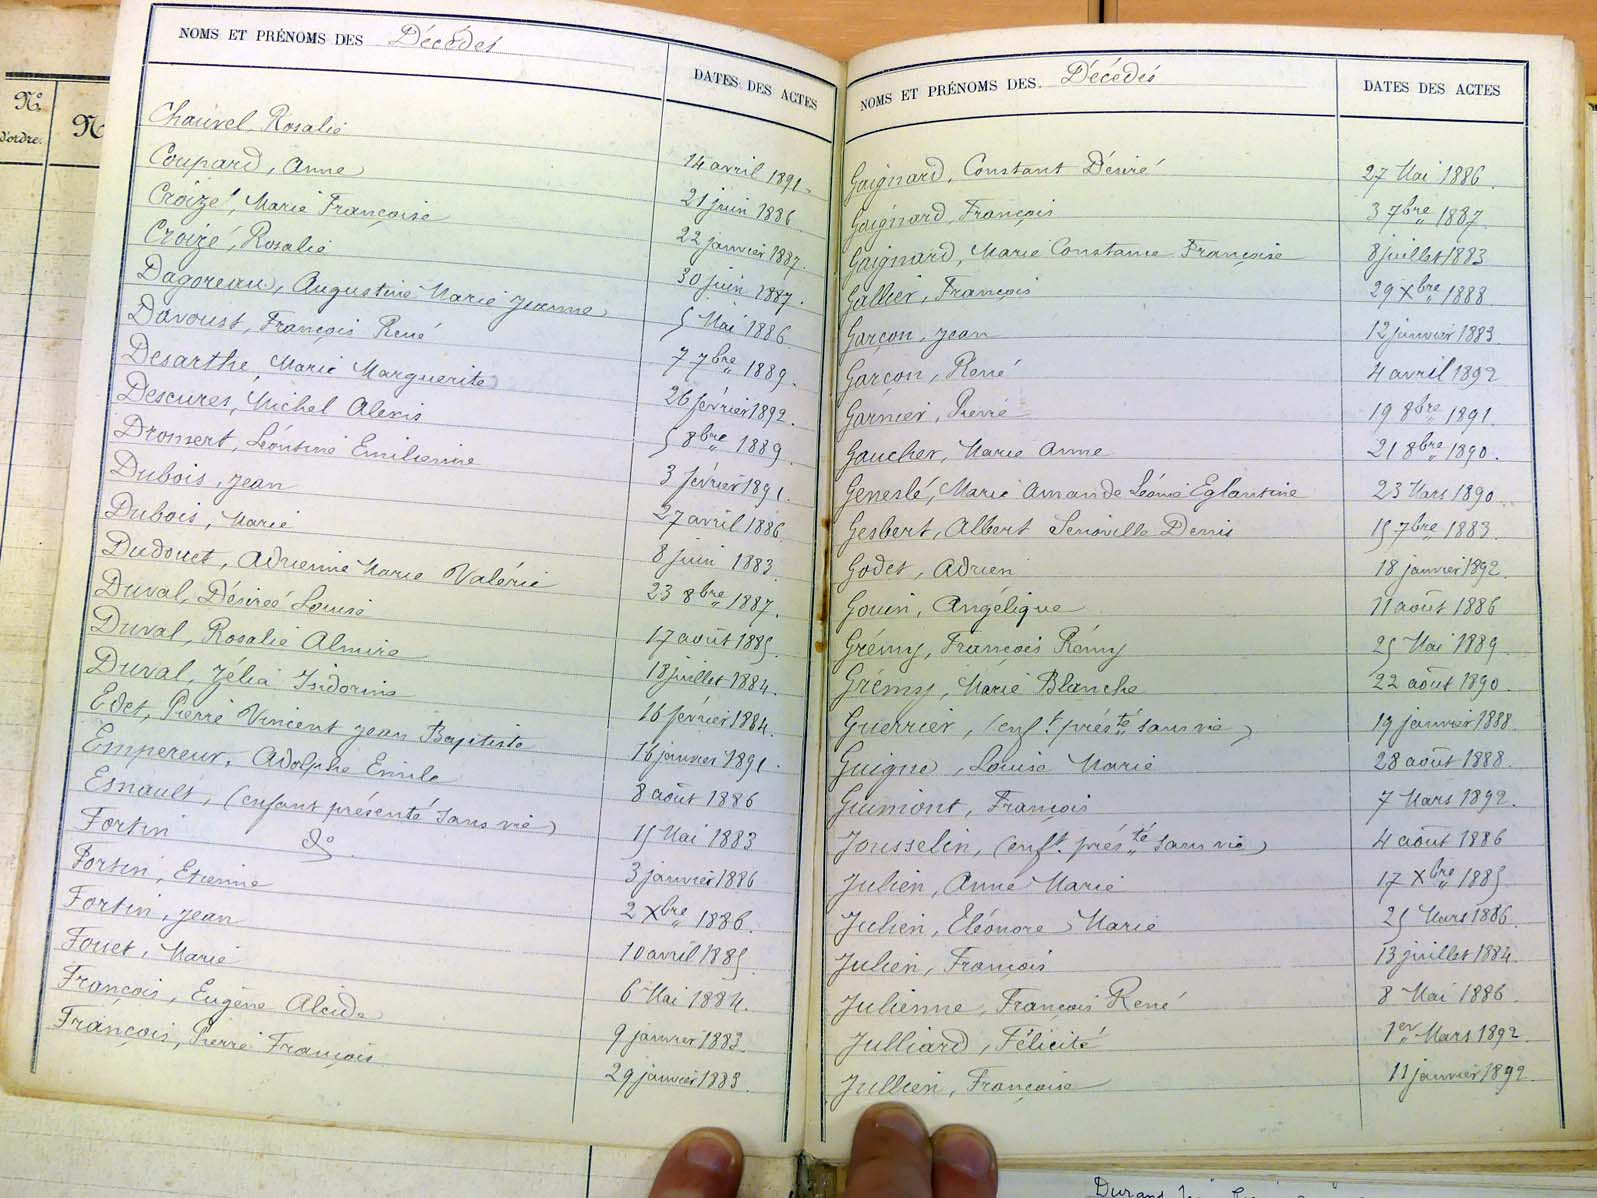 NOMS ET PRÉNOMS DES Décédés DATES DES ACTES
Chauvel, Rosalie 14 avril 1891.
Coupard, Anne 21 juin 1886
Croizé, Marie Françoise 22 janvier 1887.
Croizé, Rosalie 30 juin 1887.
Dagoreau, Augustine Marie Jeanne 5 Mai 1886
Davoust, François René 7 7bre 1889.
Desarthe, Marie Marguerite 26 février 1892.
Descures, Michel Alexis 5 8bre 1889.
Dromert, Léontine Emilienne 3 février 1891.
Dubois, Jean 27 avril 1886
Dubois, Marie 8 juin 1883.
Dudouet, Adrienne Marie Valérie 23 8bre 1887.
Duval, Désireé Louise 17 août 1885.
Duval, Rosalie Almire 18 juillet 1884.
Duval, Zélia Isidorine 16 février 1884.
Edet, Pierre Vincent Jean Baptiste 16 janvier 1891.
Empereur, Adolphe Emile 8 août 1886
Esnault, (enfant présenté sans vie) 15 Mai 1883
Fortin do 3 janvier 1886
Fortin, Etienne 2 Xbre 1886.
Fortin, Jean 10 avril 1885
Fouet, Marie 6 Mai 1884.
François, Eugène Alcide 9 janvier 1883.
François, Pierre François 29 janvier 1883.
NOMS ET PRÉNOMS DES Décédés DATES DES ACTES
Gaignard, Constant Désiré 27 Mai 1886.
Gaignard, François 3 7bre 1887.
Gaignard, Marie Constance Françoise 8 juillet 1883
Gallier, François 29 Xbre 1888
Garçon, Jean 12 janvier 1883.
Garçon, René 4 avril 1892
Garnier, Pierre 19 8bre 1891.
Gaucher, Marie Anne 21 8bre 1890.
Geneslé, Marie Amande Léonie Eglantine 23 Mars 1890
Gesbert, Albert Denis 15 7bre 1883.
Godet, Adrien 18 janvier 1892.
Gouin, Angélique 11 août 1886
Grémy, François Rémy 25 Mai 1889
Grémy, Marie Blanche 22 août 1890.
Guerrier, (enft présté sans vie) 19 janvier 1888.
Guigne, Louise Marie 28 août 1888.
Guimont, François 7 Mars 1892.
Jousselin, (enft présté sans vie) 4 août 1886
Julien, Anne Marie 17 Xbre 1885.
Julien, Eléonore Marie 25 Mars 1886.
Julien, François 13 juillet 1884.
Julienne, François René 8 Mai 1886.
Julliard, Félicité 1er Mars 1892.
Jullien, Françoise 11 janvier 1892.
No
d'ordre.
N
Durand